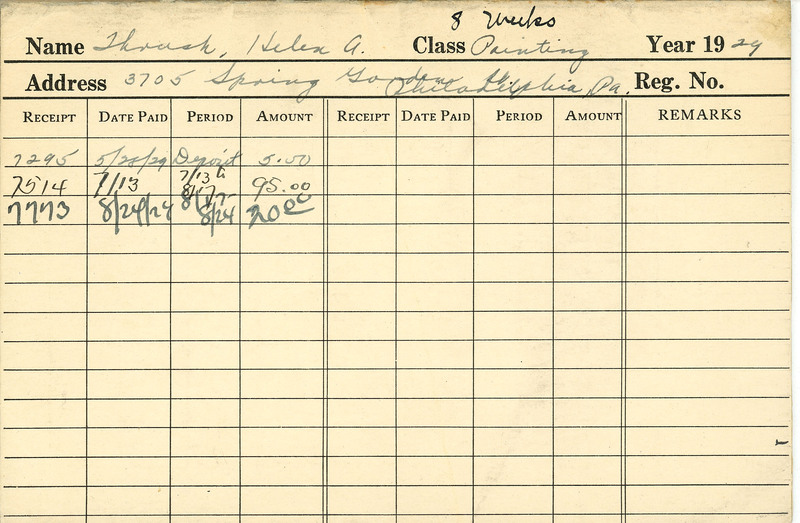 8 Weeks
Name Thrash, Helen A. Class Painting Year 19 29
Address 3705 Spring Garden St. Philadelphia, Pa. Reg. No.
RECEIPT DATE PAID PERIOD AMOUNT RECEIPT DATE PAID PERIOD AMOUNT REMARKS
7295 5/28/29 Deposit 5.00
7514 7/13 7/13 to 95.00
7773 8/24/29 8/24 20.00